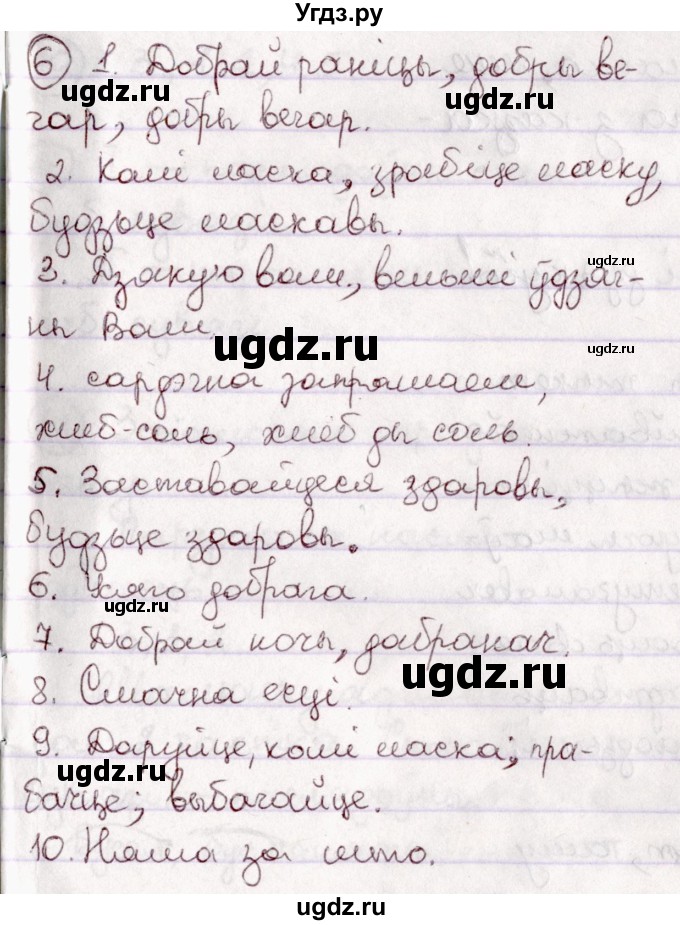 Угдз.ру
6 1. Добрай раніцы, добры ве-
ugdz.ru ugdz.ru
чар, добры вечар.
2. Калі ласка, зрабіце ласку,
будзьце ласкавы.
ugdz.ru
3. Дзякую вам, вельмі ўдзяч-
ны Вам.
ugdz.ru ugdz.ru
4. сардэчна запрашаем,
хлеб-соль, хлеб ды соль.
5. Заставайцеся здаровы,
будзьце здаровы.
6. Усяго добрага.
ugdz.ru
7. Добрай ночы, дабранач.
ugdz.ru
8. Смачна есці.
9. Даруйце, калі ласка; пра-
ugdz.ru
бачце; выбачайце.
10. Няма за што.
ugdz.ru